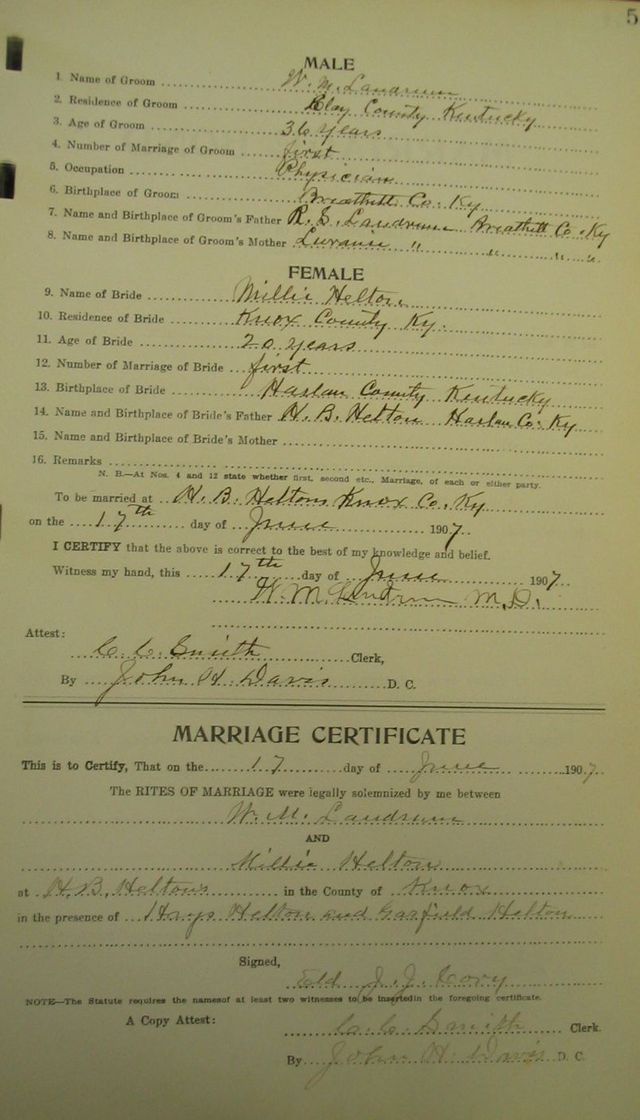 5
MALE
1. Name of Groom W. M. Landrum
2. Residence of Groom Clay County Kentucky
3. Age of Groom 36 years
4. Number of Marriage of Groom first
5. Occupation Physician
6. Birthplace of Groom Breathitt Co. Ky
7. Name and Birthplace of Groom's Father R. S. Landrum Breathitt Co. Ky
8. Name and Birthplace of Groom's Mother " " " "
FEMALE
9. Name of Bride Millie Helton
10. Residence of Bride Knox County Ky.
11. Age of Bride 20 years
12. Number of Marriage of Bride first
13. Birthplace of Bride Harlan County Kentucky
14. Name and Birthplace of Bride's Father H. B. Helton Harlan Co. Ky
15. Name and Birthplace of Bride's Mother
16. Remarks
N. B.—At Nos. 4 and 12 state whether first, second etc., Marriage, of each or either party.
To be married at H. B. Heltons Knox Co. Ky
on the 17th day of June 1907
I CERTIFY that the above is correct to the best of my knowledge and belief.
Witness my hand, this 17th day of June 1907.
W. M. Landrum M.D.
Attest:
C. C. Smith Clerk,
By John H Davis D. C.
MARRIAGE CERTIFICATE
This is to Certify, That on the 17 day of June 1907
The RITES OF MARRIAGE were legally solemnized by me between
W. M. Landrum
AND
Millie Helton
at H. B. Heltons in the County of Knox
in the presence of Helton and Garfield Helton
Signed,
Eld J. J. Cory
NOTE—The Statute requires the namesof at least two witnesses to be insertedin the foregoing certificate.
A Copy Attest: C. C. Smith Clerk.
By John H. Davis D. C.